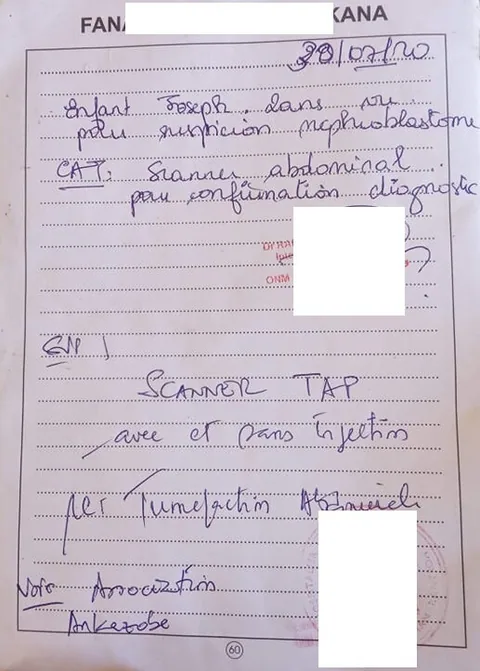 FANA KANA
/07/20
Enfant Joseph. dans
pour suspicion nephroblastome
CAT: Scanner abdominal
pour confirmation diagnostic
ONM
SCANNER TAP
avec et sans Injection
per Tumefaction
Association
Ankazobe
60